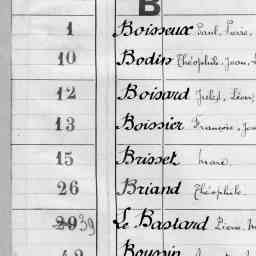 B
1 Boisseux Paul, Pierre,
10 Bodin Théophile, Jean,
12 Boisard Jules, Léon,
13 Boissier François,
15 Brisset Marc
26 Briand Théophile
29 39 Le Bastard Pierre,